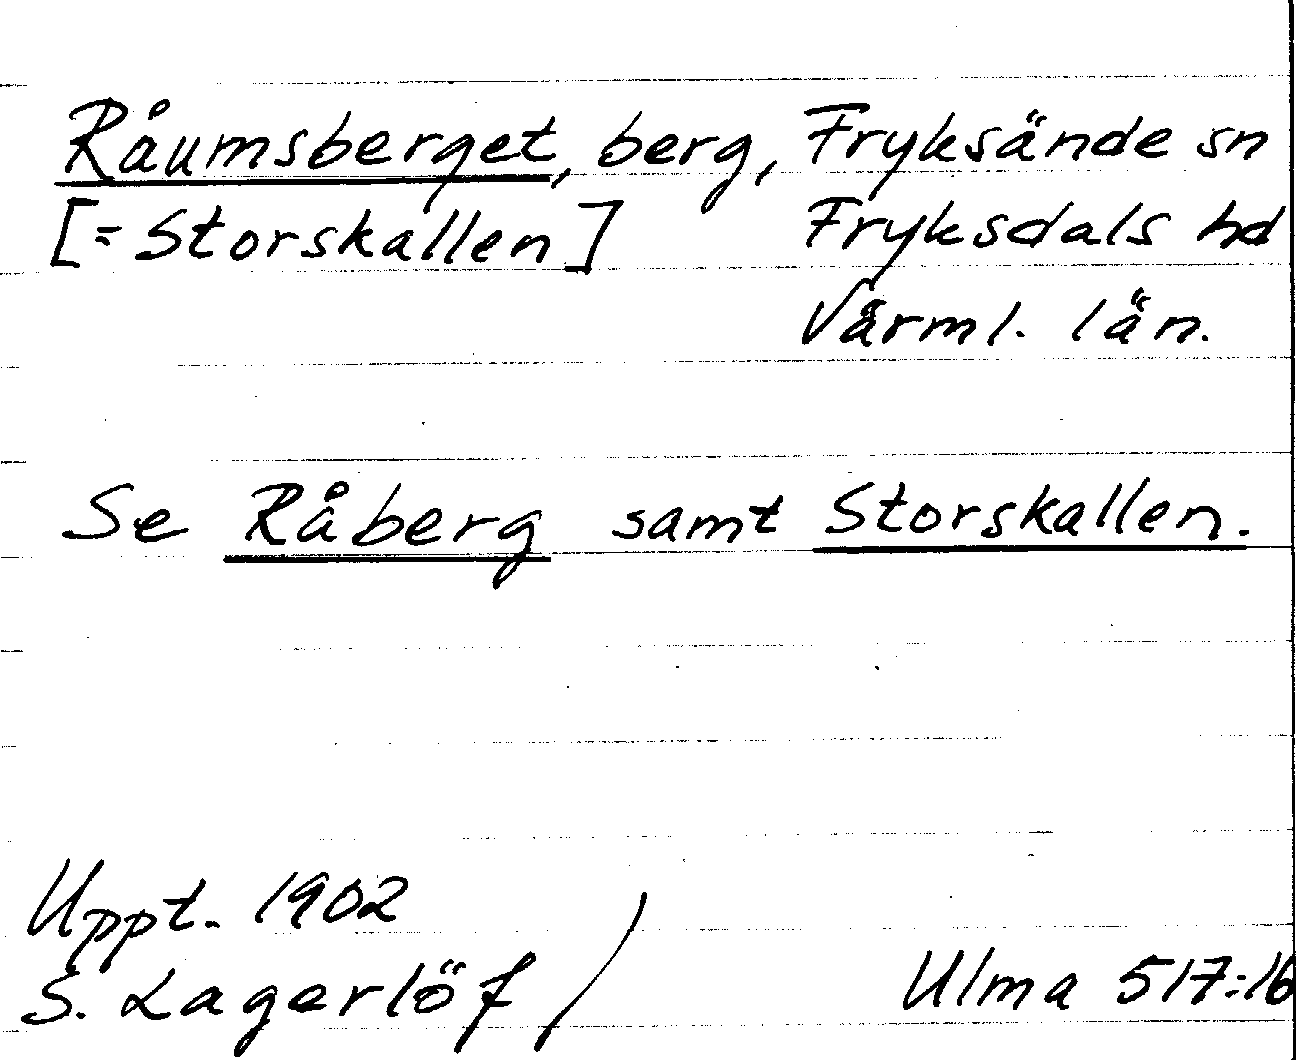 Råumsberget, berg, Fryksände sn
[= Storskallen] Fryksdals hd
Värml. län.
Se Råberg samt Storskallen.
Uppt. 1902
S. Lagerlöf / Ulma 517:16